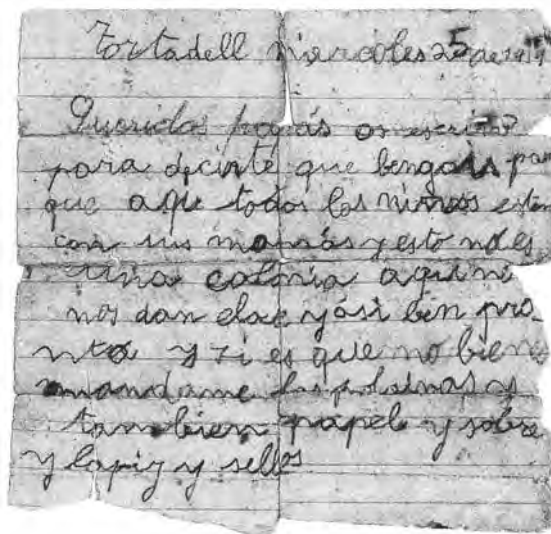 Tortadell miercoles 25 de
Queridos papás os escribo
para decirte que bengais par
que aqui todos los ninos estan
con sus mamás y esto no es
una colonia aqui ni
nos dan clace y asi ben pro
nto y si es que no bienes
mandame las polainas y
tambien papel y sobre
y lapiz y sellos